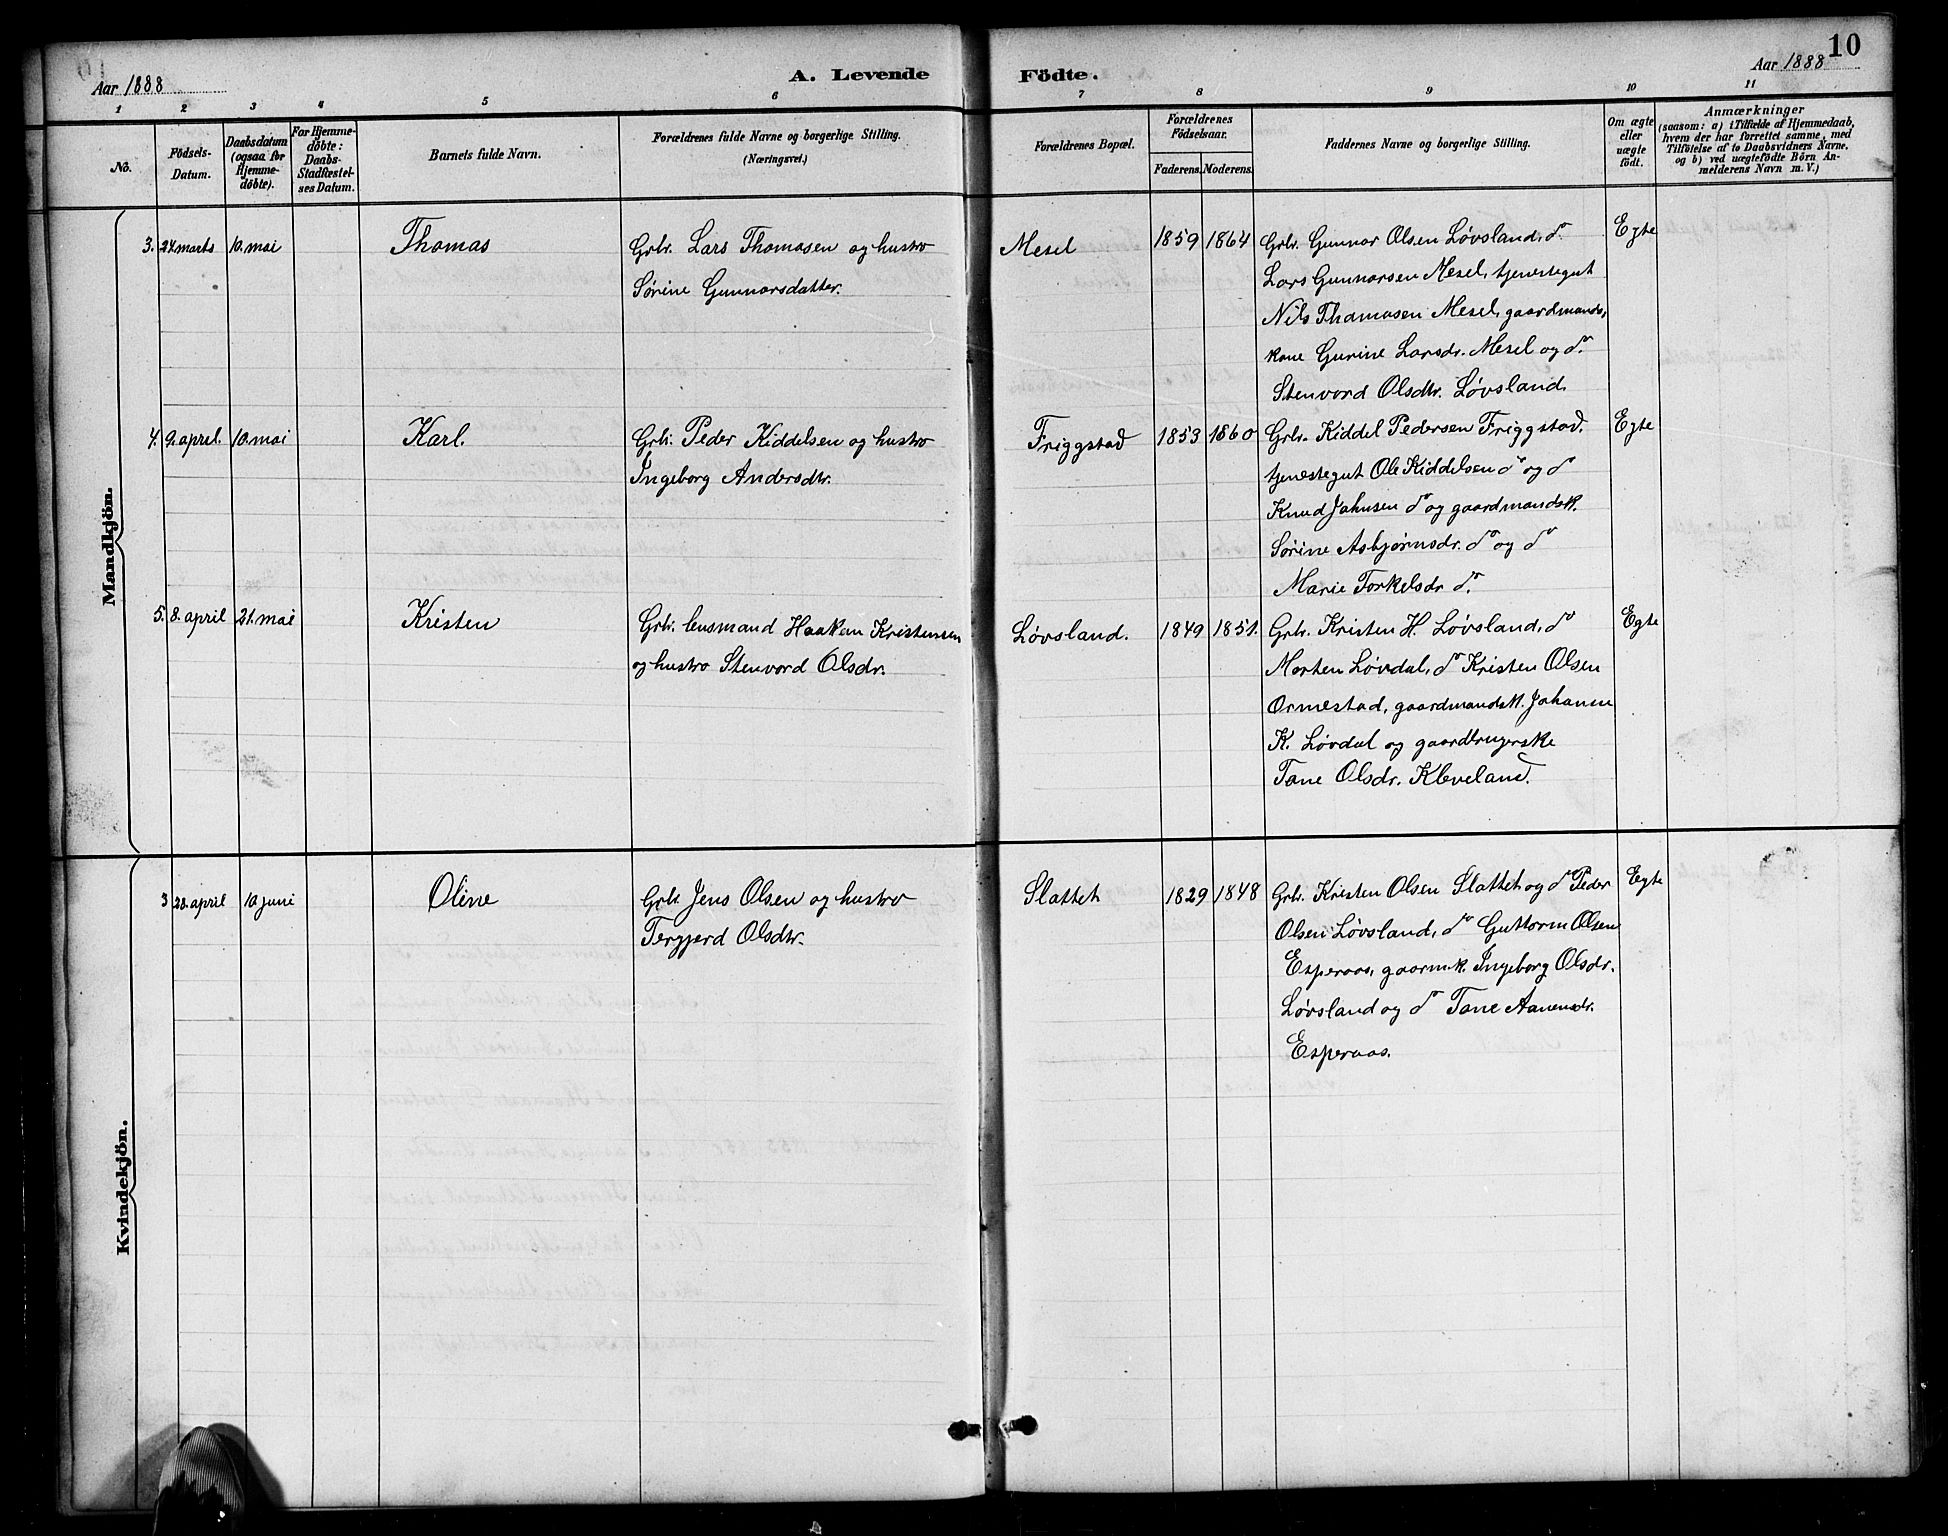 10
Aar 1888
A. Levende Födte.
Aar 1888
1 2 3 4 5 6 7 8 9 10 11
No.
Födsels-
Datum.
Daabsdatum
(ogsaa for
Hjemme-
döbte).
For Hjemme-
döbte:
Daabs-
Stadfæstel-
ses Datum.
Barnets fulde Navn.
Forældrenes fulde Navne og borgerlige Stilling.
(Næringsvei.)
Forældrenes Bopæl.
Forældrenes
Födselsaar.
Faderens. Moderens.
Faddernes Navne og borgerlige Stilling.
Om ægte
eller
uægte
födt.
Anmærkninger
(saasom: a) i Tilfælde af Hjemmedaab,
hvem der har forrettet samme, med
Tilföielse af to Daabsvidners Navne.
og b) ved uægtefödte Börn An-
melderens Navn m. V.)
Mandkjön.
3. 24 marts 10. mai
Thomas
Grbr. Lars Thomasen og hustro
Sørine Gunnarsdatter.
Mesel
1859 1864
Grbr. Gunnar Olsen Løvsland, do
Lars Gunnarsen Mesel, tjenestegut
Nils Thomasen Mesel, gaardmands,
kone Gurine Larsdr. Mesel og do
Stenvord Olsdtr. Løvsland.
Egte
4. 9. april. 10. mai
Karl.
Grb. Peder Kiddelsen og hustro
Ingeborg Andersdtr.
Friggstad
1853 1860
Grbr. Kiddel Pedersen Friggstad.
tjenestegut Ole Kiddelsen do og do
Knud Jahnsen do og gaardmandsk.
Sørine Asbjørnsdr. do og do
Marie Torkelsdr do.
Egte
5. 8. april 21. mai
Kristen
Grbr. husmand Haaken Kristensen
og hustro Stenvord Olsdr.
Løvsland.
1849 1851.
Grbr. Kristen H. Løvsland, do
Morten Løvdal, do Kristen Olsen
Ormestad, gaardmandsk. Johanne
K. Løvdal og gaardbrugerske
Tane Olsdr. Kleveland.
Egte
Kvindekjön.
3 28. april 10 juni
Oline
Grbr. Jens Olsen og hustro
Tergjerd Olsdtr.
Slattet
1829 1848
Grbr. Kristen Olsen Slattet og do Peder
Olsen Løvsland, do Guttorm Olsen
Esperaas, gaarmk. Ingeborg Olsdr.
Løvsland og do Tane Aanensdr.
Esperaas.
Egte